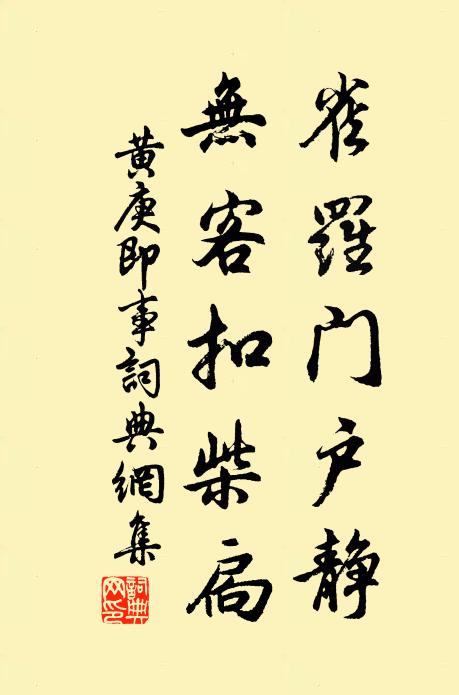 雀羅門户靜
無客扣柴扃
黄庚即事詞典網集
詞典網印